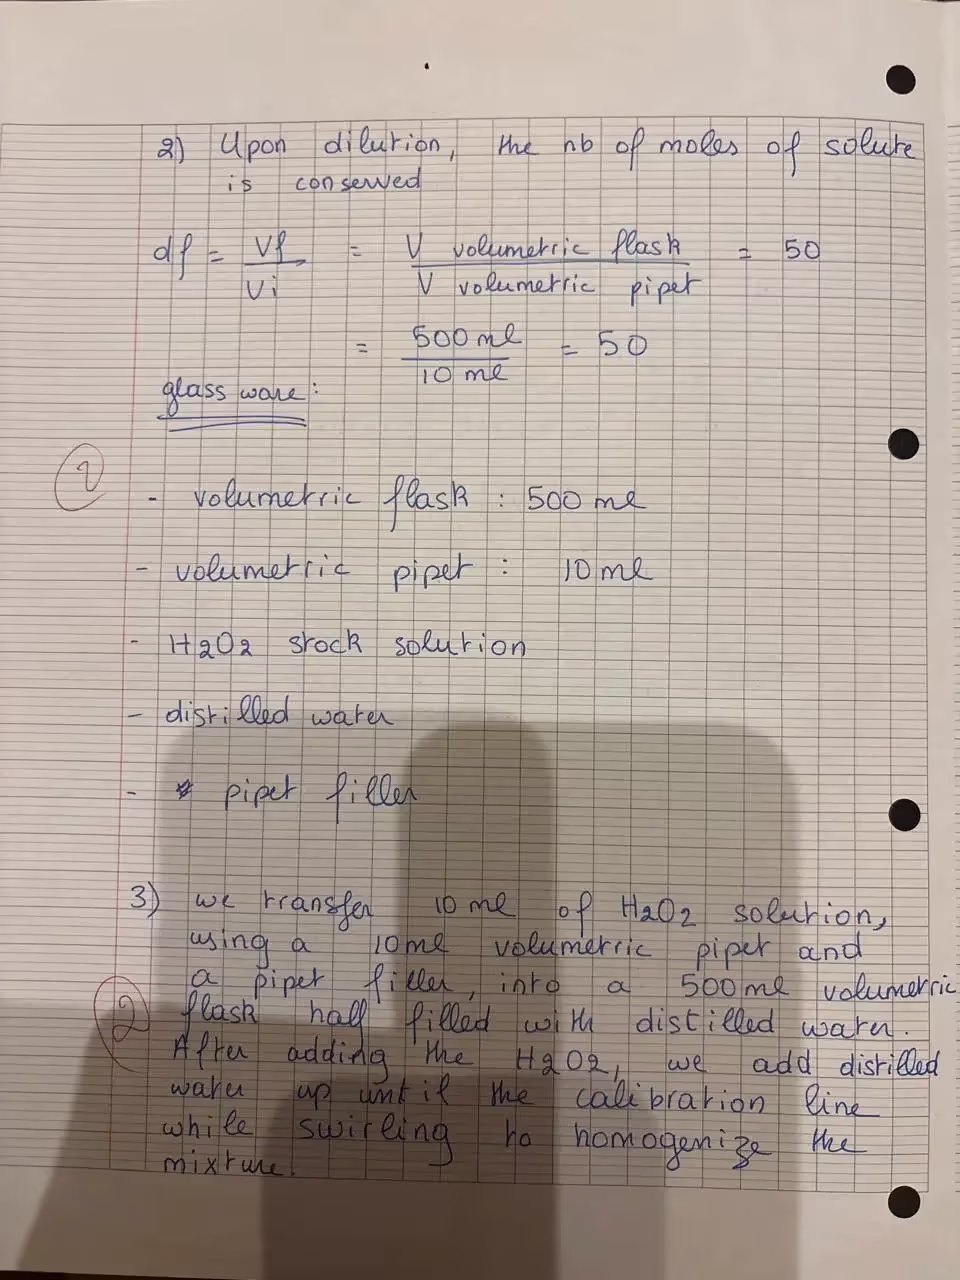 2) Upon dilution, the nb of moles of solute
is conserved
df = Vf / Vi = V volumetric flask / V volumetric pipet = 50
= 500 ml / 10 ml = 50
glass ware :
2
- volumetric flask : 500 ml
- volumetric pipet : 10 ml
- H2O2 stock solution
- distilled water
- pipet filler
3) we transfer 10 ml of H2O2 solution,
using a 10ml volumetric pipet and
a pipet filler, into a 500 ml volumetric
2
flask half filled with distilled water.
After adding the H2O2, we add distilled
water up until the calibration line
while swirling to homogenize the
mixture.